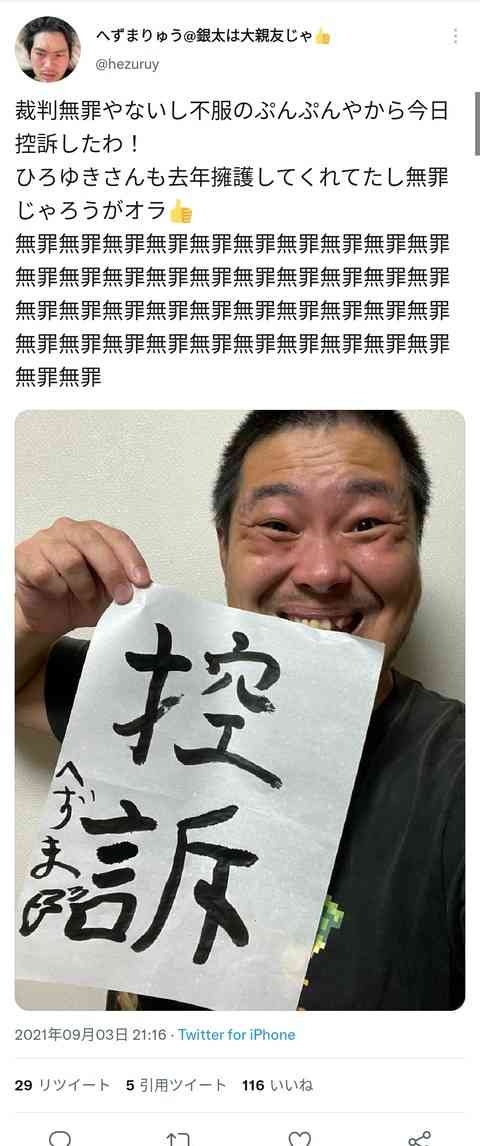 へずまりゅう@銀太は大親友じゃ👍
@hezuruy
裁判無罪やないし不服のぷんぷんやから今日
控訴したわ！
ひろゆきさんも去年擁護してくれてたし無罪
じゃろうがオラ👍
無罪無罪無罪無罪無罪無罪無罪無罪無罪無罪
無罪無罪無罪無罪無罪無罪無罪無罪無罪無罪
無罪無罪無罪無罪無罪無罪無罪無罪無罪無罪
無罪無罪無罪無罪無罪無罪無罪無罪無罪無罪
無罪無罪
控訴
へずま
2021年09月03日 21:16 · Twitter for iPhone
29 リツイート 5 引用ツイート 116 いいね